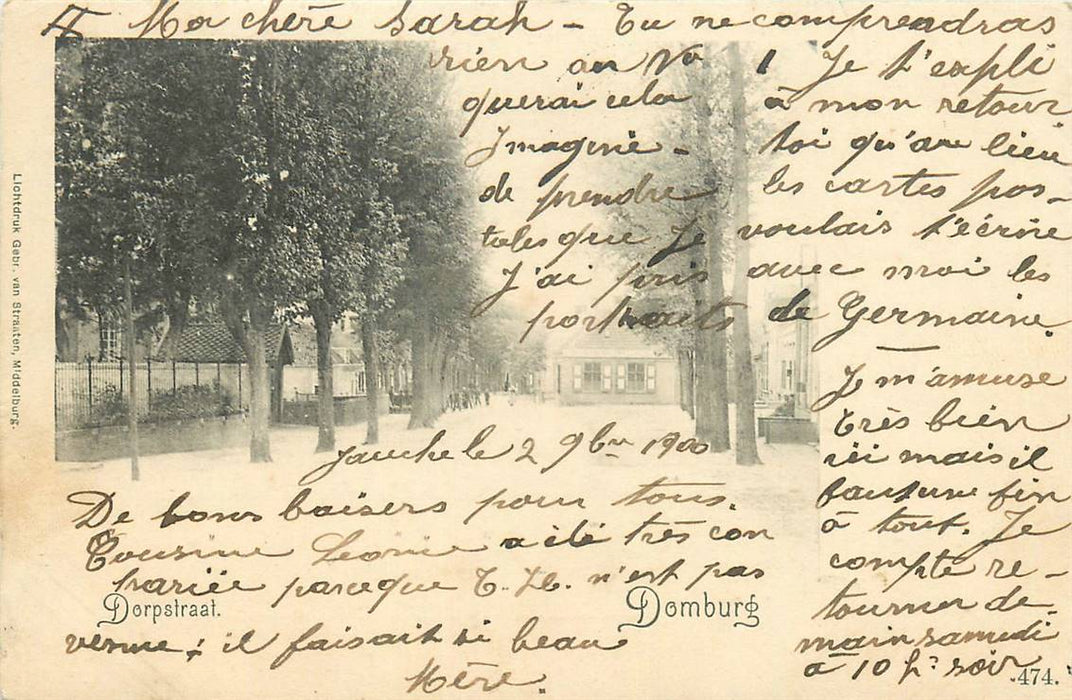 Ma chère Sarah - Tu ne comprendras
rien au V° 1 Je t'expli
querai cela à mon retour
Imagine - toi qu'au lieu
de prendre les cartes pos-
tales que je voulais t'écrire
J'ai pris avec moi les
portraits de Germaine.
Je m'amuse
très bien
ici mais il
faut une fin
à tout. Je
compte re-
tourner de-
main samedi
à 10 h. soir
Jauche le 2 9bre 1900
De bons baisers pour tous.
Cousine Léonie a été très con
trariée parce que T. H. n'est pas
Dorpstraat. Domburg
venue ; il faisait si beau
Mère.
474.
Lichtdruk Gebr. van Straaten, Middelburg.